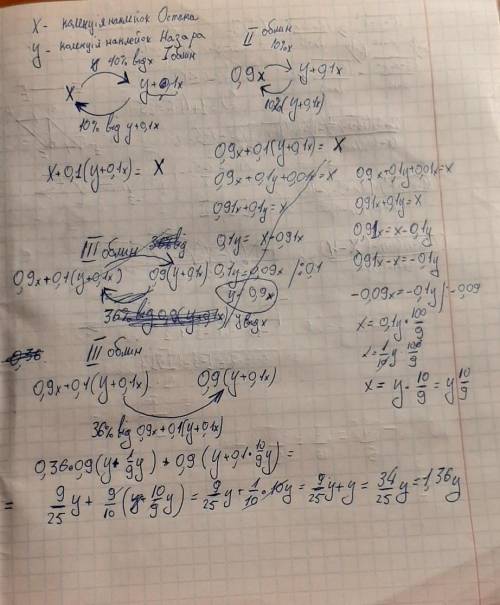 X - колекція наклейок Остапа
y - колекція наклейок Назара
10% від x I обмін
X y+0,1x
10% від y+0,1x
II обмін
10% x
0,9x y+0,1x
10% (y+0,1x)
X+0,1(y+0,1x) = X
0,9x+0,1(y+0,1x) = X
0,9x+0,1y+0,01x = X
0,91x+0,1y = X
0,1y = X-0,91x
0,1y = 0,09x /:0,1
y = 0,9x
0,9x+0,1y+0,01x = x
0,91x+0,1y = x
0,91x = x-0,1y
0,91x-x = -0,1y
-0,09x = -0,1y /:-0,09
x = 0,1y · 100/9
x = 1/10 y · 100/9
x = y · 10/9 = y 10/9
III обмін
0,9x+0,1(y+0,1x) 0,9(y+0,1x)
36% від 0,9(y+0,1x) y від x
0,36
III обмін
0,9x+0,1(y+0,1x) 0,9(y+0,1x)
36% від 0,9x+0,1(y+0,1x)
0,36·0,9(y+1/9y)+0,9(y+0,1·10/9y) =
= 9/25y + 9/10(y+10/9y) = 9/25y + 1/10·10y = 9/25y+y = 34/25y = 1,36y